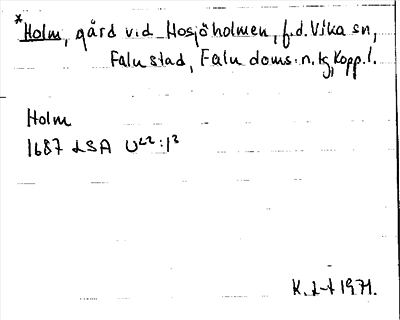 *Holm, gård v.d. Hosjöholmen, f.d. Vika sn,
Falu stad, Falu doms.n. tg, Kopp. l.
Holm
1687 LSA U22:13
K. L-t 1971.